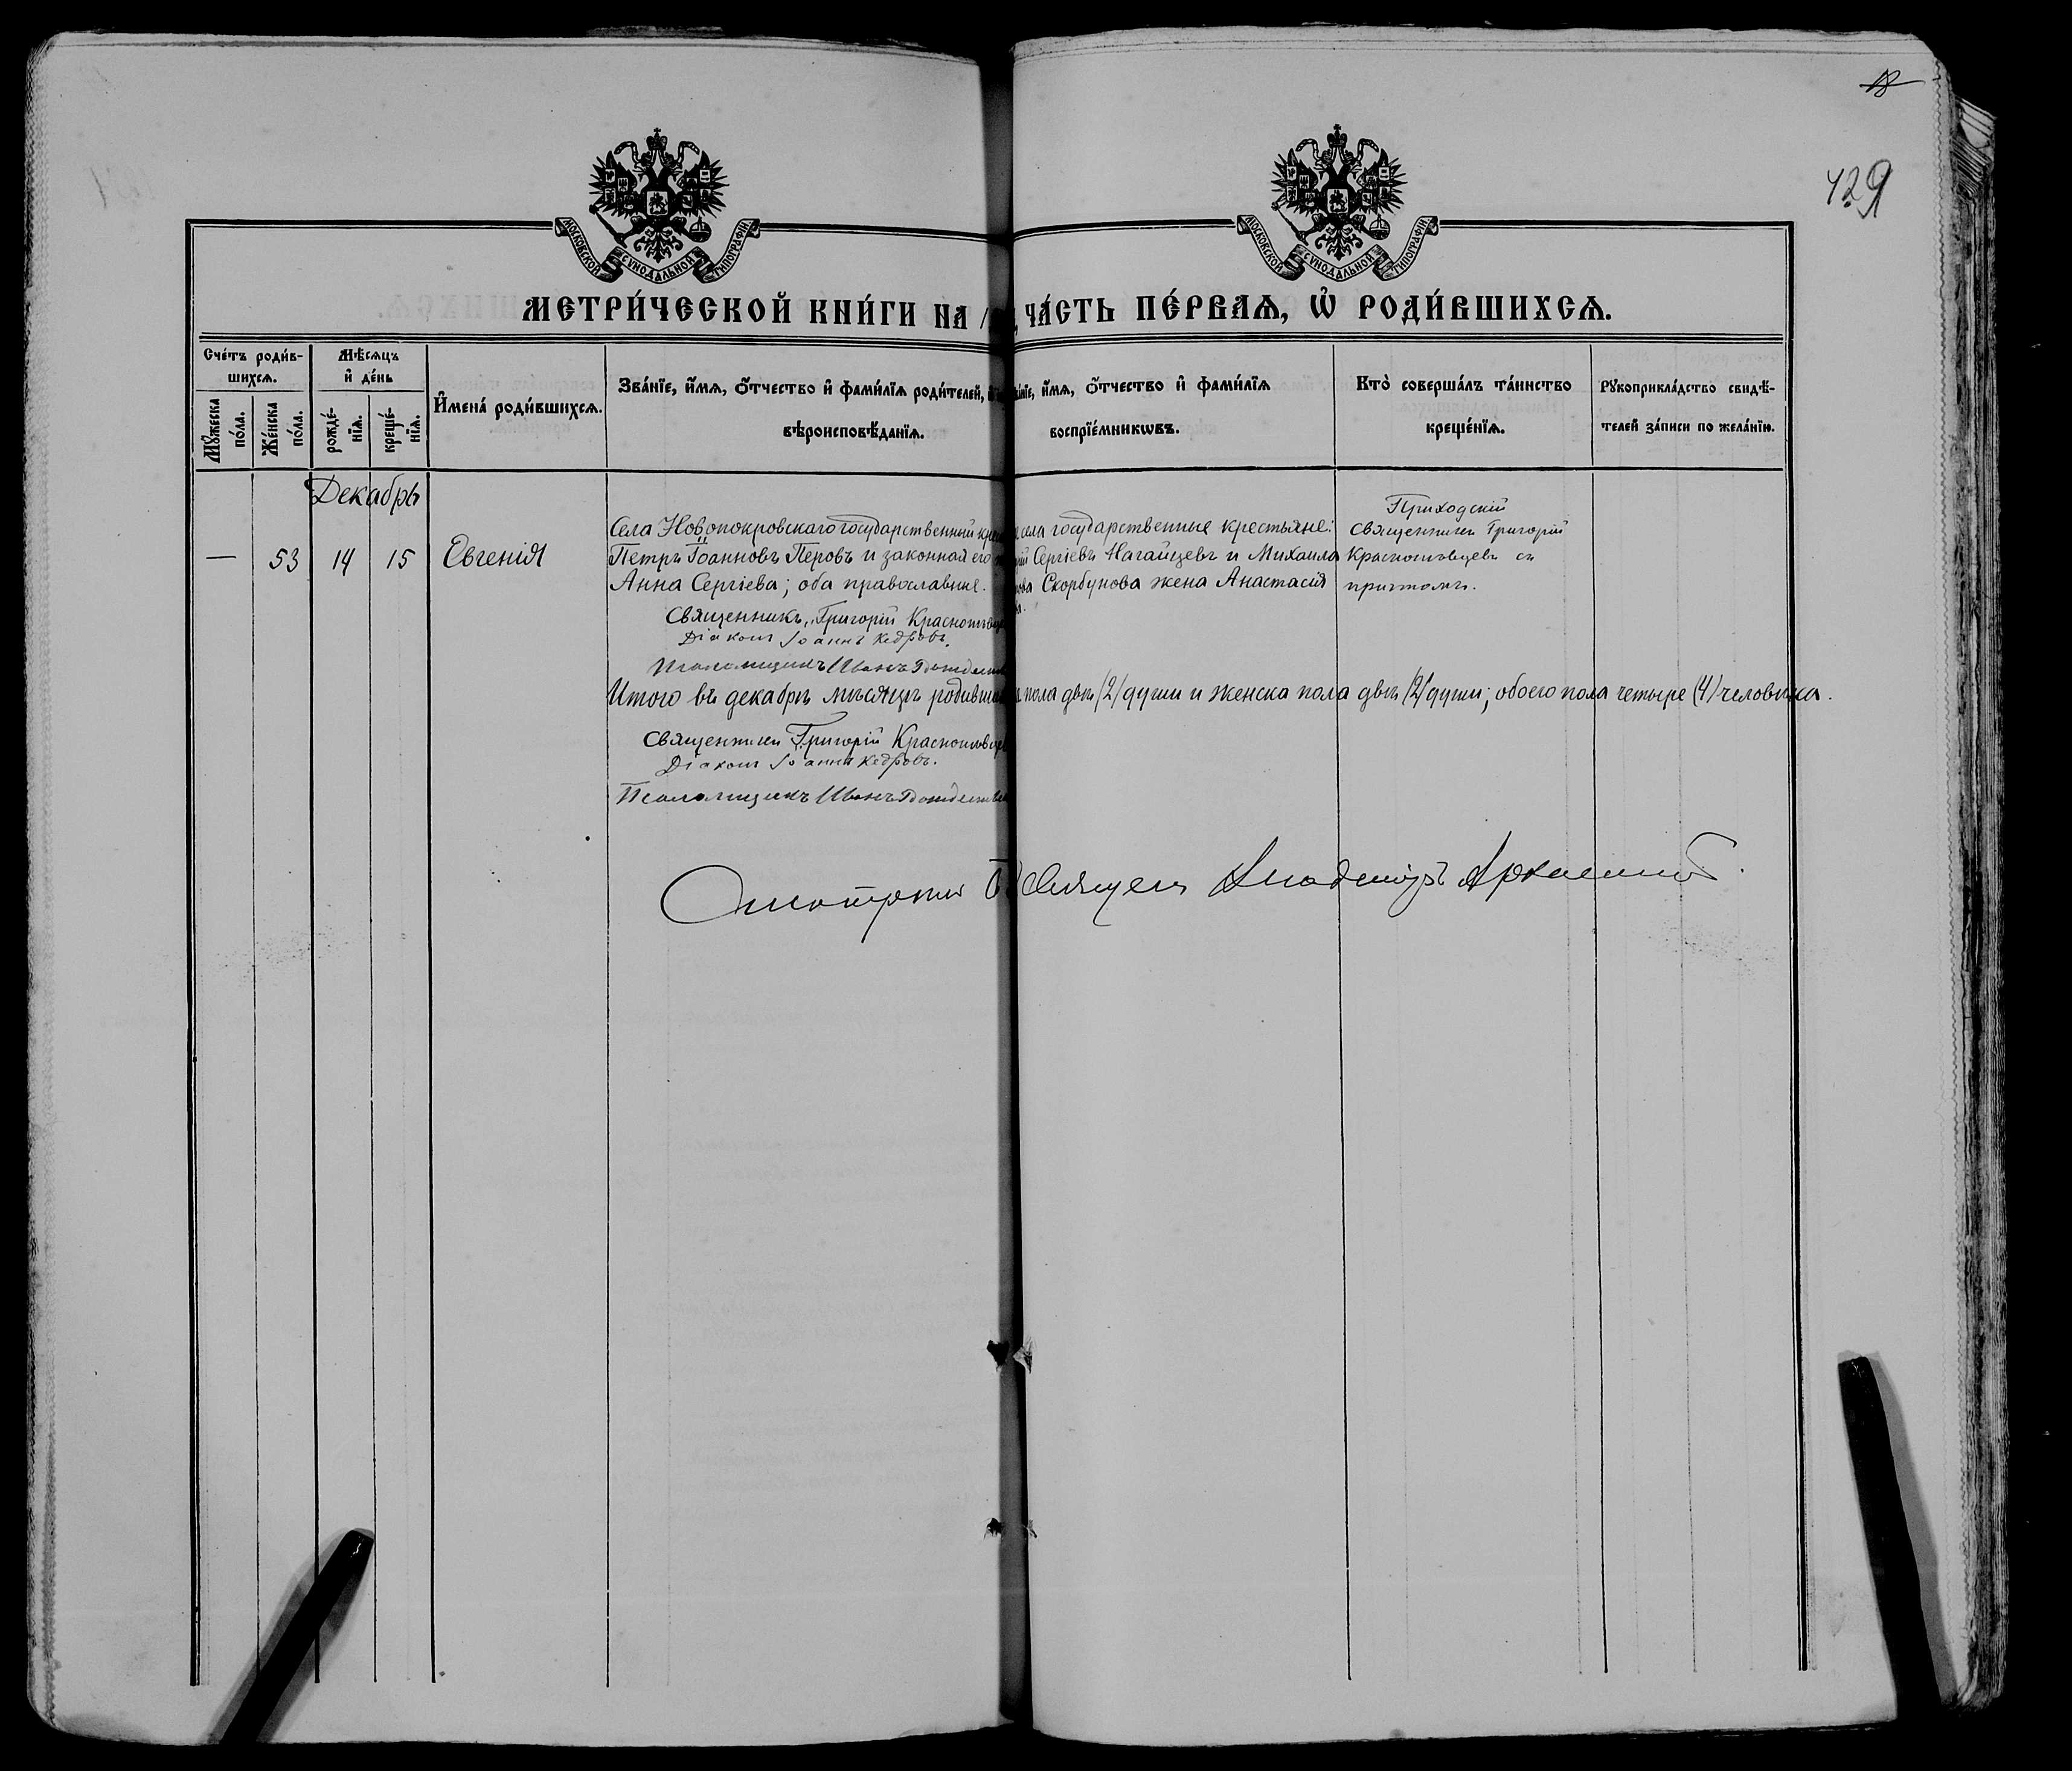 18
429
МОСКОВСКОЙ СѴНОДАЛЬНОЙ ТИПОГРАФІИ
МОСКОВСКОЙ СѴНОДАЛЬНОЙ ТИПОГРАФІИ
МЕТРИ́ЧЕСКОЙ КНИ́ГИ НА
ЧА́СТЬ ПЕ́РВАѦ, Ѡ҆ РОДИ́ВШИХСѦ.
Сче́тъ роди́в-
шихсѧ.
Мꙋ́жеска
по́ла.
Же́нска
по́ла.
Мѣ́сѧцъ
и҆ де́нь
рожде́-
нїѧ.
креще́-
нїѧ.
И҆мена̀ роди́вшихсѧ.
Зва́нїе, и҆́мѧ, ѻ҆́тчество и҆ фами́лїѧ роди́телей,
вѣроисповѣ́данїѧ.
и҆́мѧ, ѻ҆́тчество и҆ фами́лїѧ
воспрїе́мникѡвъ.
Кто̀ соверша́лъ та́инство
креще́нїѧ.
Рꙋкоприкла́дство свидѣ́-
телей за́писи по жела́нїю.
Декабрь
— 53 14 15 Евгенія
Села Новопокровскаго государственный
Петръ Іоанновъ Перовъ и законная его
Анна Сергіева; оба православные.
села государственные крестьяне:
Сергіевъ Нагайцевъ и Михаила
Скорбунова жена Анастасія
Приходскій
Священникъ Григорій
Краснопѣвцевъ съ
причтомъ.
Священникъ Григорій
Діаконъ Іоаннъ Кедровъ.
Псаломщикъ Иванъ
Итого въ декабрѣ мѣсяцѣ
пола двѣ /2/ души и женска пола двѣ /2/ души; обоего пола четыре (4) человѣка.
Священникъ Григорій
Діаконъ Іоаннъ Кедровъ.
Псаломщикъ Иванъ